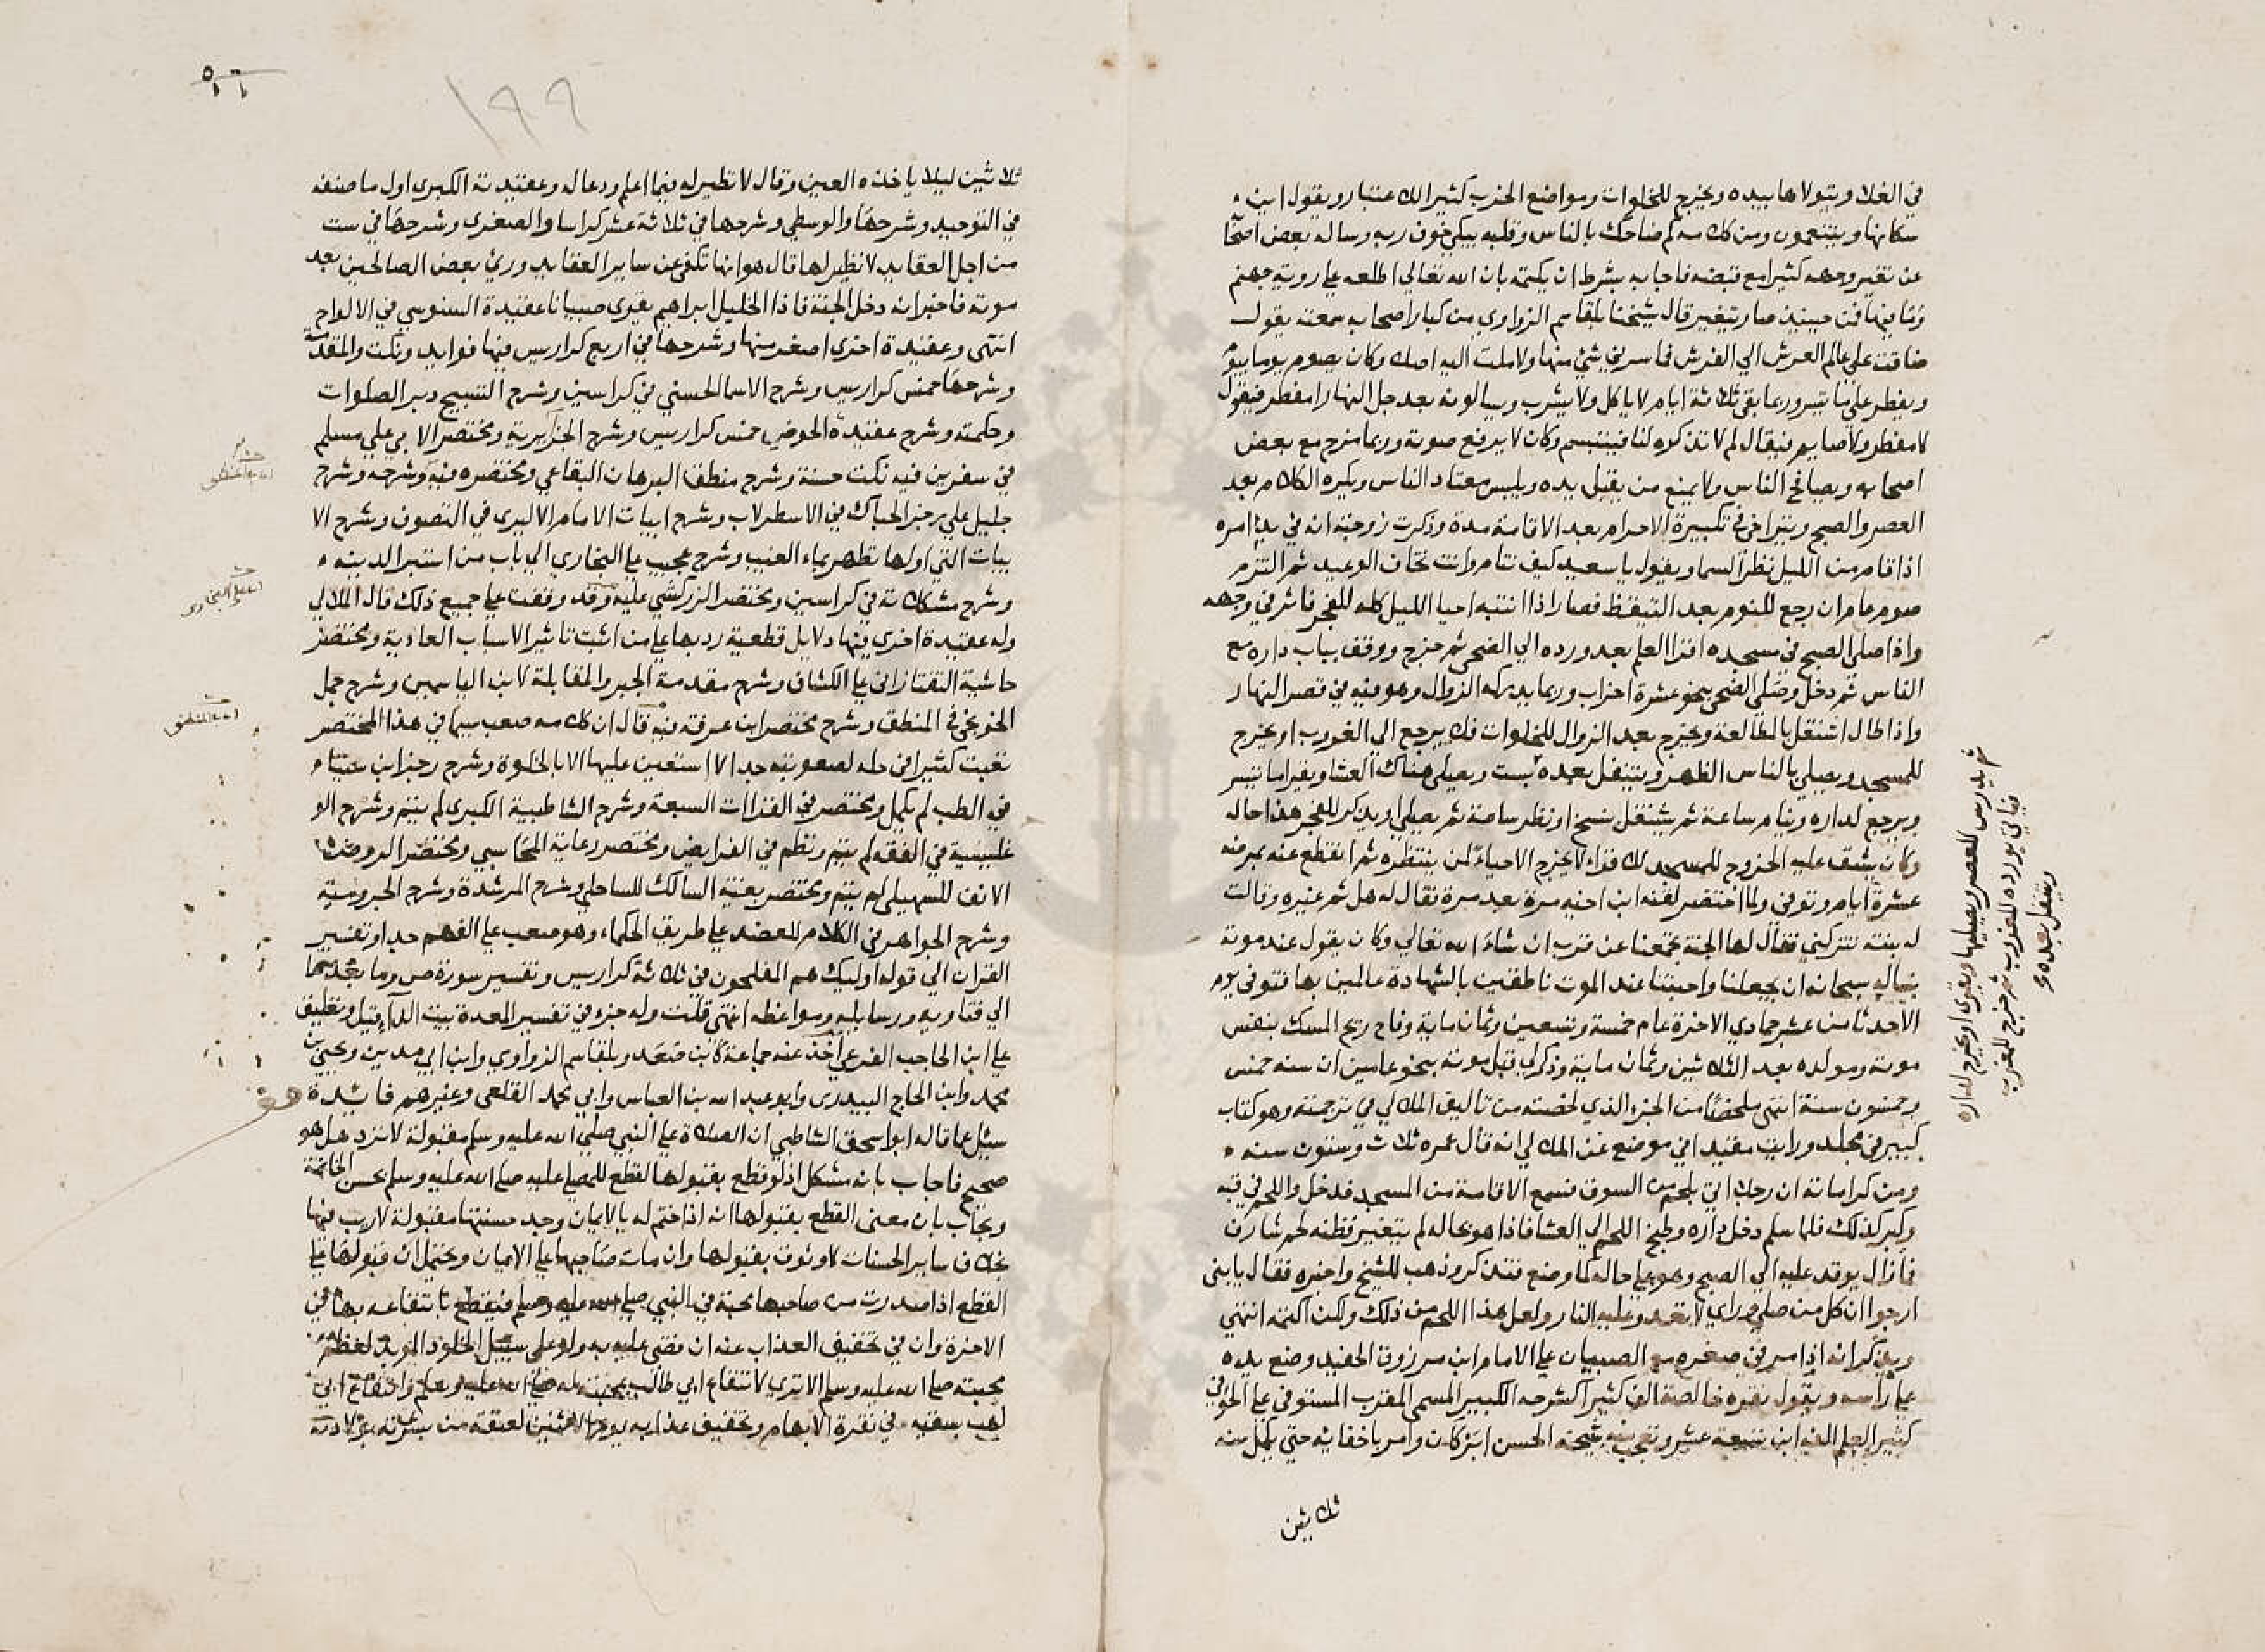 في الغلا ويتولاها بيده ويخرج للخلوات ومواضع الخرب كثير الاعتبار ويقول اين
سكانها وينتعمون ومن كلامه كم ضاحك بالناس وقلبه يبكي خوف ربه وساله بعض اصحا
عن تغير وجهه كثيرا مع قبضه فاجابه بشرط ان يكتمه بان الله تعالي اطلعه علي روية جهنم
وما فيها فمن حينيذ صار يتغير قال شيخنا بلقاسم الزواوي من كبار اصحابه سمعته يقول
ضاقت علي عالم العرش الي الفرش فما سرني شئ منها ولا ملت اليه اصلا وكان يصوم يوما بيوم
ويفطر علي ما تيسر وربما بقي ثلاثة ايام لا ياكل ولا يشرب ويسالونه بعد جل النهار امفطر فيقول
لا مفطر ولا صايم فيقال لم لا تذكره لنا فيتبسم وكان لا يرفع صوته وربما مزح مع بعض
اصحابه ويصافح الناس ولا يمنع من يقبل يده ويلبس معتاد الناس ويكره الكلام بعد
العصر والصبح ويتراخي في تكبيرة الاحرام بعد الاقامة مدة وذكرت زوجته انه في بدئ امره
اذا قام من الليل نظر السما ويقول يا سعيد كيف تنام وانت تخاف الوعيد ثم التزم
صوم عام ان رجع للنوم بعد التيقظ فصار اذا انتبه احيا الليل كله للفجر فاثر في وجهه
واذا صلي الصبح في مسجده اقرا العلم بعد ورده الي الضحي ثم خرج ووقف بباب داره مع
الناس ثم دخل وصلي الضحي بنحو عشرة احزاب وربما يدركه الزوال وهو فيه في قصر النهار
واذا طال اشتغل بالمطالعة ويخرج بعد الزوال للخلوات فلا يرجع الي الغروب او يخرج
للمسجد ويصلي بالناس الظهر ويتنفل بعده بست ويصلي هناك العشا ويقرا ما تيسر
ويرجع لداره وينام ساعة ثم يشتغل بنسخ او نظر ساعة ثم يصلي او يذكر للفجر هذا حاله
وكان يشق عليه الخروج للمسجد لا يخرج الا حياء لمن ينتظره ثم انقطع عنه بمرضه
عشرة ايام وتوفي ولما احتضر لقنه ابن اخيه مرة بعد مرة فقال له هل ثم غيره وقالت
له بنته تتركني فقال لها الجنة تجمعنا عن قرب ان شاء الله تعالي وكان يقول عند موته
نساله سبحانه ان يجعلنا واحبتنا عند الموت ناطقين بالشهادة عالمين بها فتوفي يوم
الاحد ثامن عشر جمادي الاخرة عام خمسة وتسعين وثمان ماية وفاح ريح المسك بنفس
موته ومولده بعد الثلاثين وثمان ماية وذكر لي قبل موته بنحو عامين ان سنه خمس
وخمسون سنة انتهي ملخصا من الجزء الذي لخصته من تاليف الملالي في ترجمته وهو كتاب
كبير في مجلد ورايت مقيدا في موضع عن الملالي انه قال عمره ثلاث وستون سنه
ومن كراماته ان رجلا اتي بلحم من السوق فسمع الاقامة من المسجد فدخل واللحم في قبه
وكبر كذلك فلما سلم دخل داره وطبخ اللحم الي العشا فاذا هو بحاله لم يتغير فظنه لحم شارف
فما زال يوقد عليه الي الصبح وهو علي حاله كما وضع فتذكر وذهب للشيخ واخبره فقال يا بني
ارجوا ان كل من صلي وراي لا تعدو عليه النار ولعل هذا اللحم من ذلك ولكن اكتمه انتهي
ويذكر انه اذا مر في صغره مع الصبيان علي الامام ابن مرزوق الحفيد وضع يده
علي راسه ويقول نقره خالصة الف كثيرا كشرحه الكبير المسمي المقرب المستوفي علي الحوفي
كثير العلم الفه ابن تسعة عشر وتعجب منه شيخه الحسن ابركان وامر باخفايه حتي يكمل سنه
ثلاثين
ثم يدرس للعصر ويصليها ويقري او يخرج لداره
فياتي بورده للغروب ثم خرج للمغرب
ويتنفل بعده
١٩٩
ثلاثين ليلا ياخذه العين وقال لا نظير له فيما اعلم ودعا له وعقيدته الكبري اول ما صنفه
في التوحيد وشرحها والوسطي وشرحها في ثلاثة عشر كراسا والصغري وشرحها في ست
من اجل العقايد لا نظير لها قال هو انها تكفي عن ساير العقايد وري بعض الصالحين بعد
موته فاخبر انه دخل الجنة فاذا الخليل ابراهيم يقري صبيانا عقيدة السنوسي في الالواح
انتهي وعقيدة اخري اصغر منها وشرحها في اربع كراريس فيها فوايد ونكت والمقدمة
وشرحها خمس كراريس وشرح الاسما الحسني في كراسين وشرح التسبيح دبر الصلوات
وحكمته وشرح عقيدة الحوضي خمس كراريس وشرح الجزايرية ومختصر الابي علي مسلم
في سفرين فيه نكت حسنة وشرح منطق البرهان البقاعي ومختصره فيه وشرحه وشرح
جليل علي رجز الحباك في الاسطرلاب وشرح ابيات الامام الاليري في التصوف وشرح الا
بيات التي اولها تطهر بماء الغيب وشرح عجيب علي البخاري الي باب من استبرا لدينه
وشرح مشكلاته في كراسين ومختصر الزركشي عليه وقد وقفت علي جميع ذلك قال الملالي
وله عقيدة اخري فيها دلايل قطعية رد بها علي من اثبت تاثير الاسباب العادية ومختصر
حاشية التفتازاني علي الكشاف وشرح مقدمة الجبر والمقابلة لابن الياسمين وشرح جمل
الخونجي في المنطق وشرح مختصر ابن عرفة فيه قال ان كلامه صعب سيما في هذا المختصر
تعبت كثيرا في حله لصعوبته جدا لا استعين عليها الا بالخلوة وشرح رجز ابن سينا
في الطب لم يكمل ومختصر في القراات السبعة وشرح الشاطبية الكبري لم يتم وشرح الو
غليسية في الفقه لم يتم ونظم في الفرايض ومختصر رعاية المحاسبي ومختصر الروض
الانف للسهيلي لم يتم ومختصر بغية السالك للساحلي وشرح المرشدة وشرح الجرومية
وشرح الجواهر في الكلام للعضد علي طريق الحكماء وهو صعب علي الفهم جدا وتفسير
القران الي قوله اوليك هم المفلحون في ثلاثة كراريس وتفسير سورة ص وما بعدها
الي فتاويه ورسايله ومواعظه انتهي قلت وله جزء في تفسير المعدة بيت الداء قيل وتعليق
علي ابن الحاجب الفرعي اخذ عنه جماعة كابن صعد وبلقاسم الزواوي وابن ابي مدين ويحيي بن
محمد وابن الحاج البيدري وابو عبد الله بن العباس وابي محمد القلعي وغيرهم فايدة
سيل عما قاله ابو اسحق الشاطبي ان الصلاة علي النبي صلي الله عليه وسلم مقبولة لا ترد هل هو
صحيح فاجاب بانه مشكل اذ لو قطع بقبولها لقطع للمصلي عليه صلي الله عليه وسلم بحسن الخاتمة
ويجاب بان معني القطع بقبولها انه اذا ختم له بالايمان وجد حسنتها مقبولة لا ريب فيها
بخلاف ساير الحسنات لا وثوق بقبولها وان مات صاحبها علي الايمان ويحتمل ان قبولها علي
القطع اذا صدرت من صاحبها محبة في النبي صلي الله عليه وسلم فيقطع بانتفاعه بها في
الاخرة وان في تخفيف العذاب عنه ان قضي عليه به ولو علي سبيل الخلود المويد لعظم
محبته صلي الله عليه وسلم الا تري لانتفاع ابي طالب بمحبته له صلي الله عليه وسلم وانتفاع ابي
لهب بسقيه في نقرة الابهام وتخفيف عذابه يوم الاثنين لعتقه من بشرته بولادته